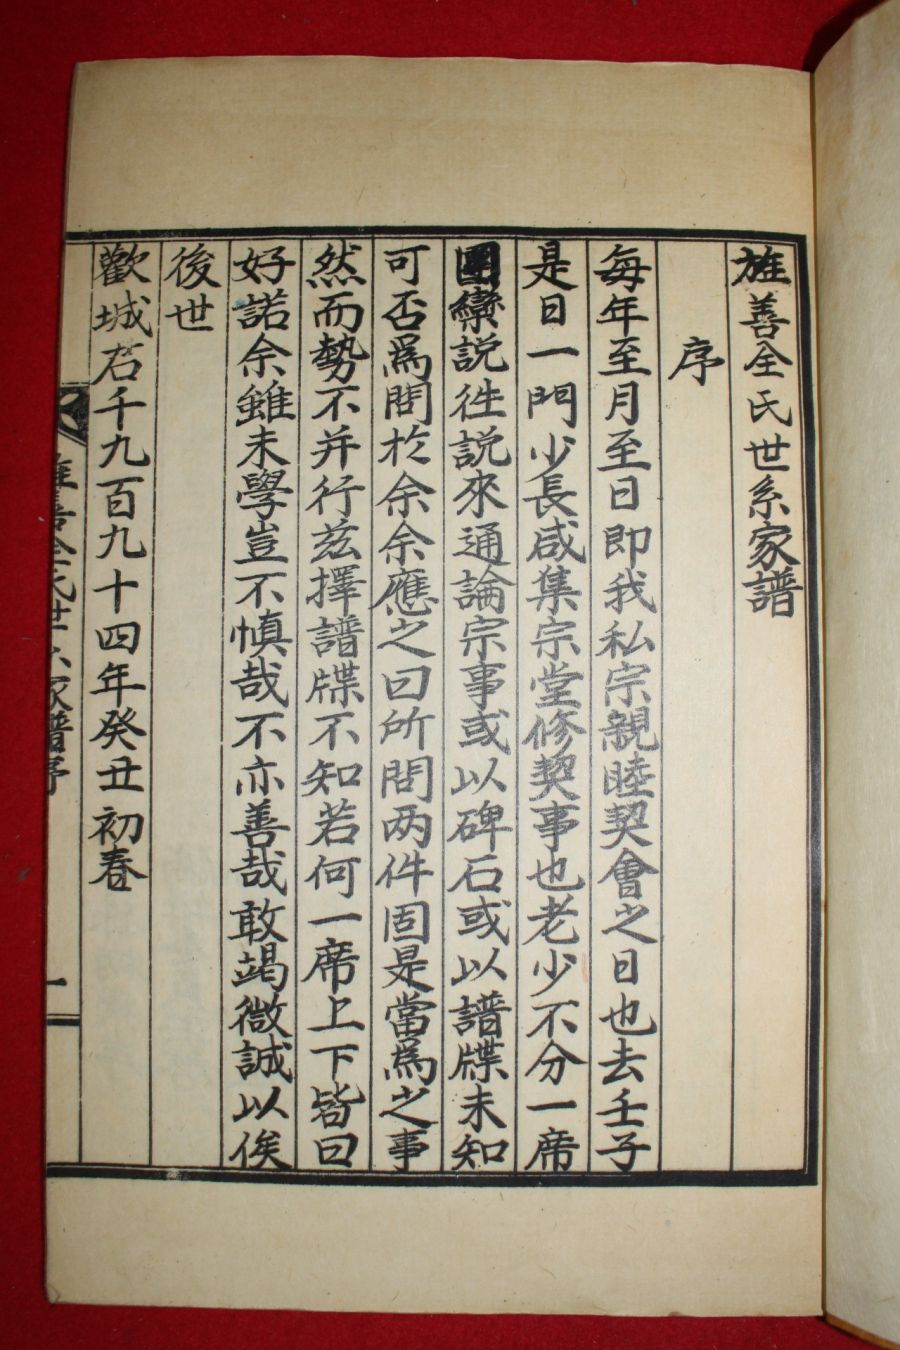 旌善全氏世系家譜
序
每年至月至日即我私宗親睦契會之日也去壬子
是日一門少長咸集宗堂修契事也老少不分一席
團欒説徃説來通論宗事或以碑石或以譜牒未知
可否爲問於余余應之曰所問两件固是當爲之事
然而勢不并行兹擇譜牒不知若何一席上下皆曰
好諾余雖未學豈不愼哉不亦善哉敢竭微誠以俟
後世
歡城后千九百九十四年癸丑初春
旌善全氏世系家譜序
一